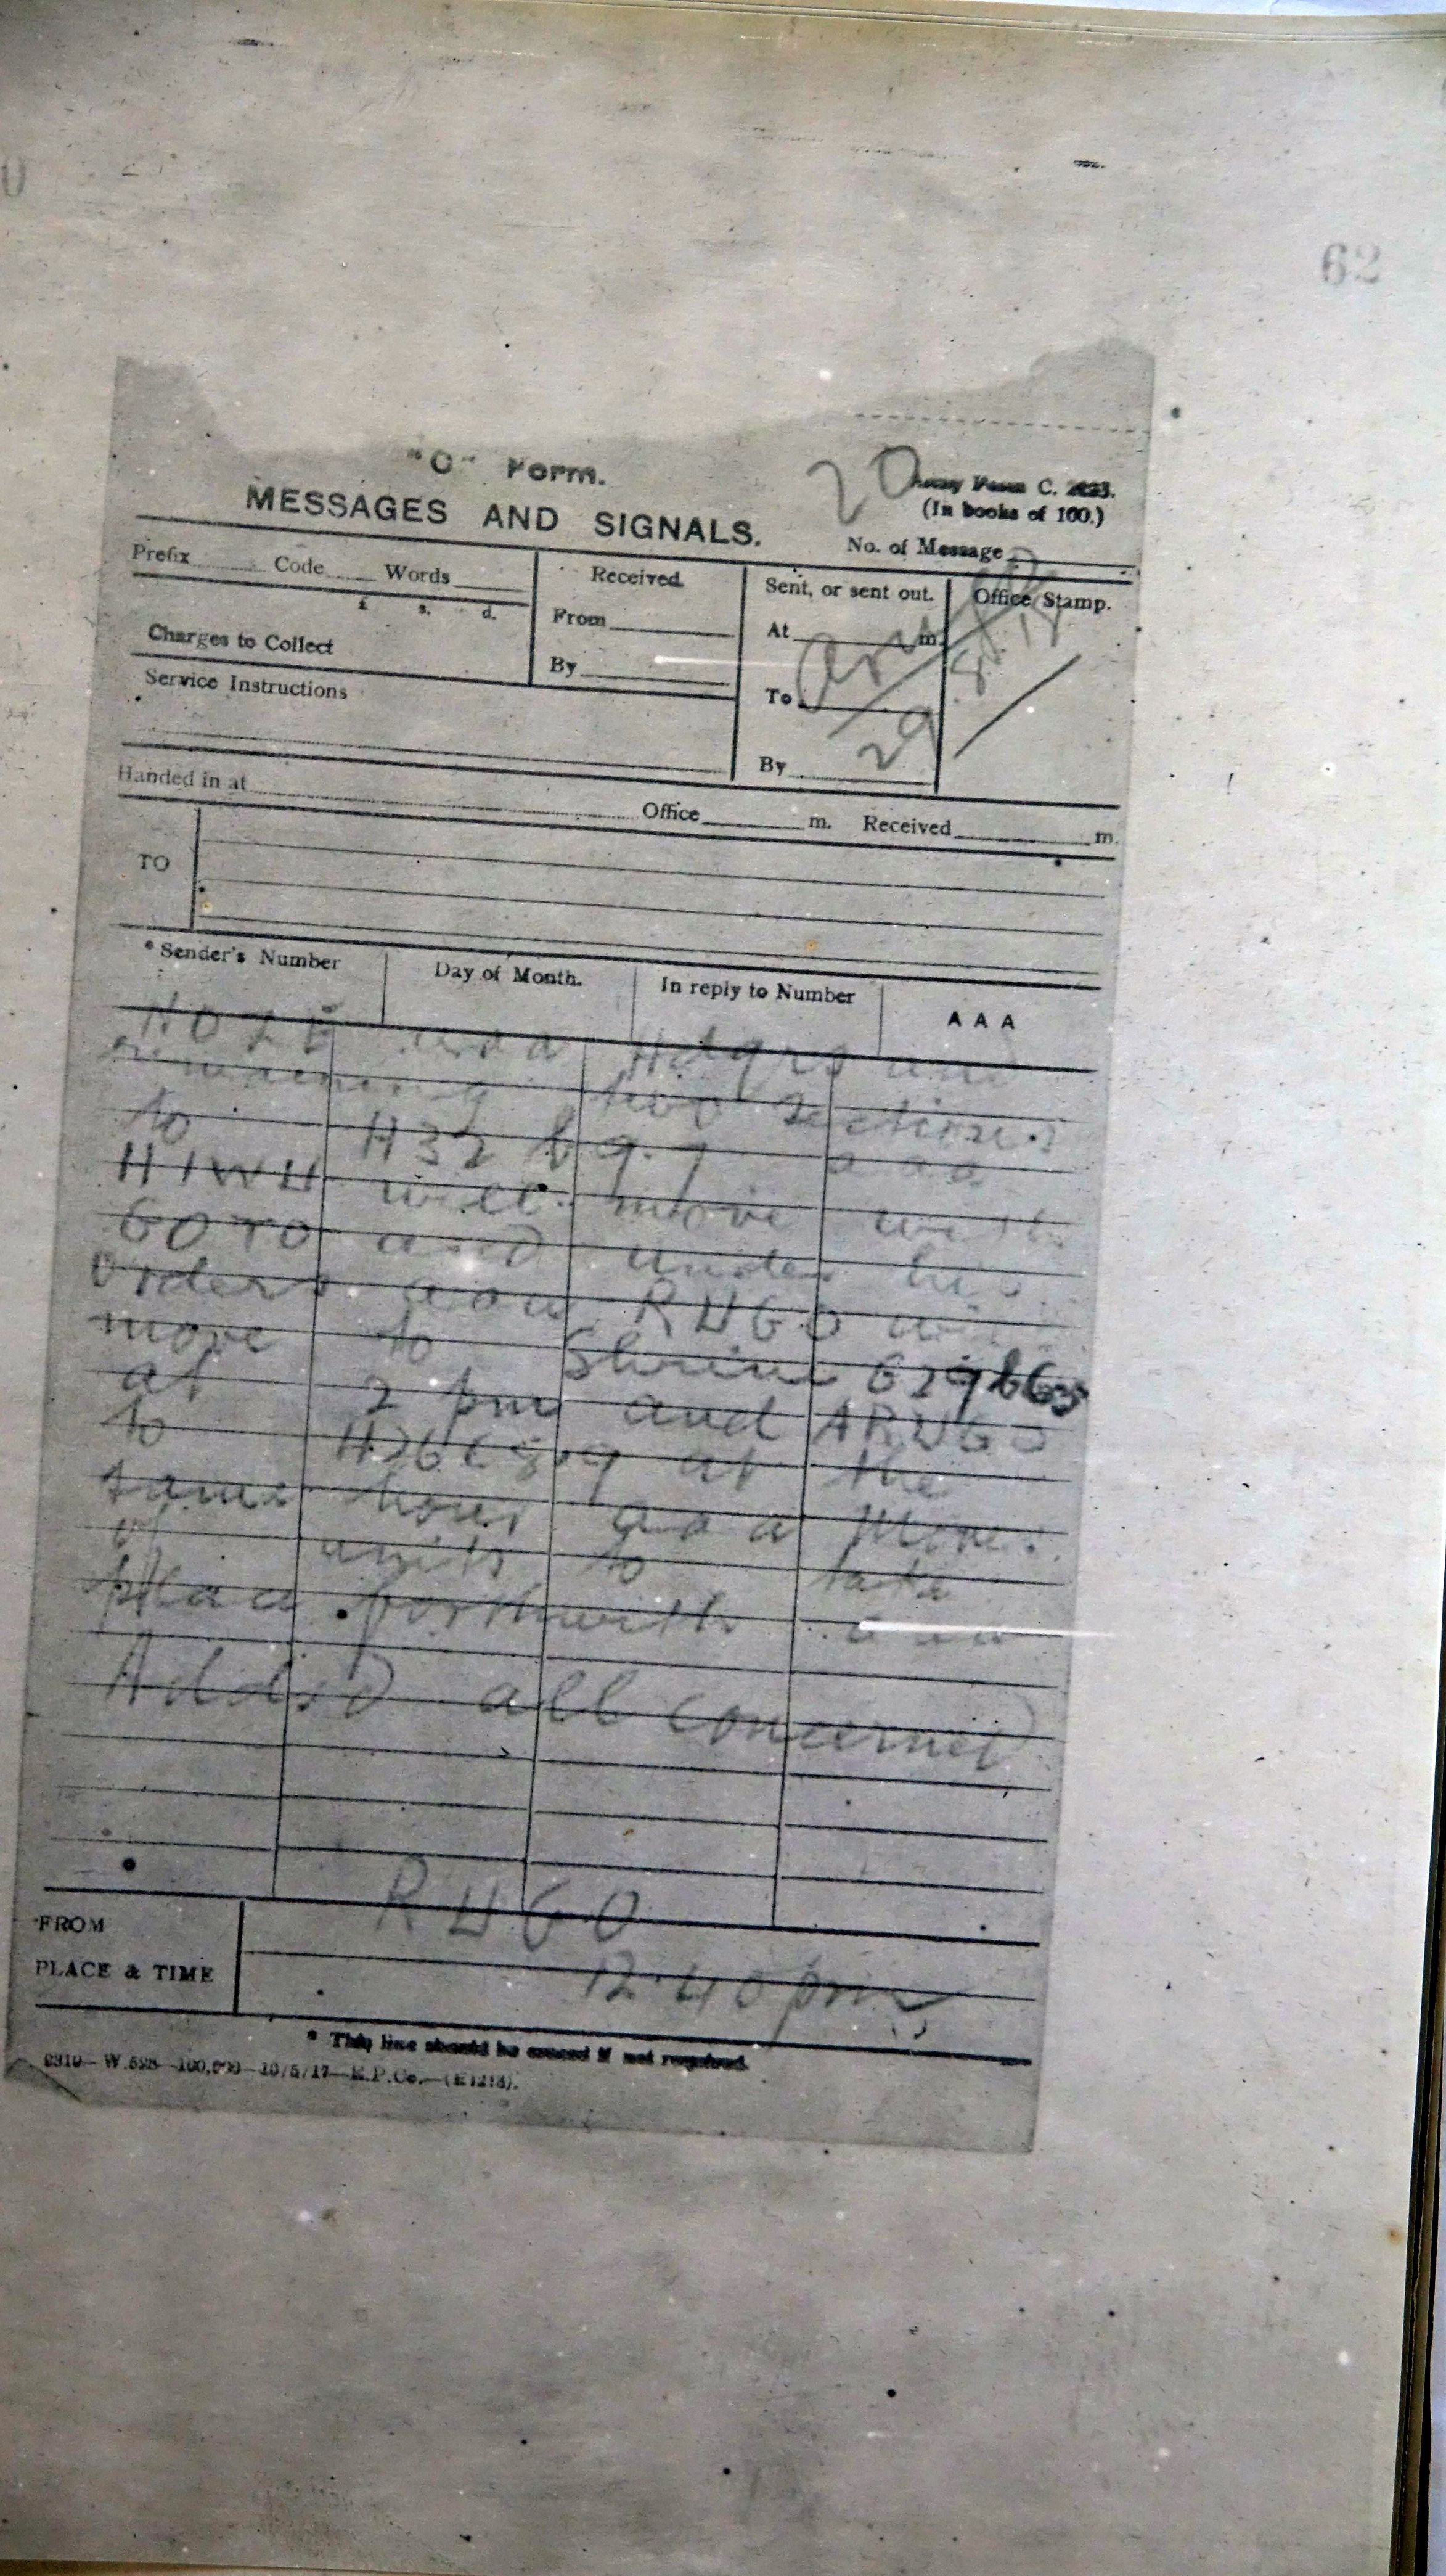 62
"C" Form.
20
MESSAGES AND SIGNALS.
(In books of 100.)
No. of Message
Prefix Code Words
Received
Sent, or sent out.
Office Stamp.
£ s. d.
From
At m.
Charges to Collect
By
Service Instructions
To
29.8.18
By
Handed in at Office m. Received m.
TO
*Sender's Number
Day of Month.
In reply to Number
AAA
Hdqrs and
remaining two sections
to H32 b 9.7 aaa
HIWU will move with
GOTO and under his
orders aaa RUGO will
move to Shrine G29b63
at 2 pm and ARUGO
to H26c8.9 at the
same hour aaa Move
of units to take
place forthwith aaa
Addsd all concerned
RUGO
FROM
PLACE & TIME
12.40 pm
* This line should be erased if not required.